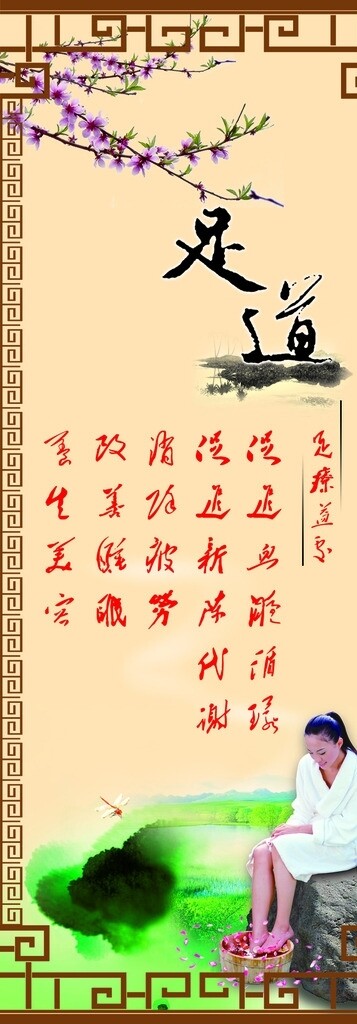 足道
足療道家
促进血液循环
促进新陈代谢
消除疲劳
改善睡眠
养生美容